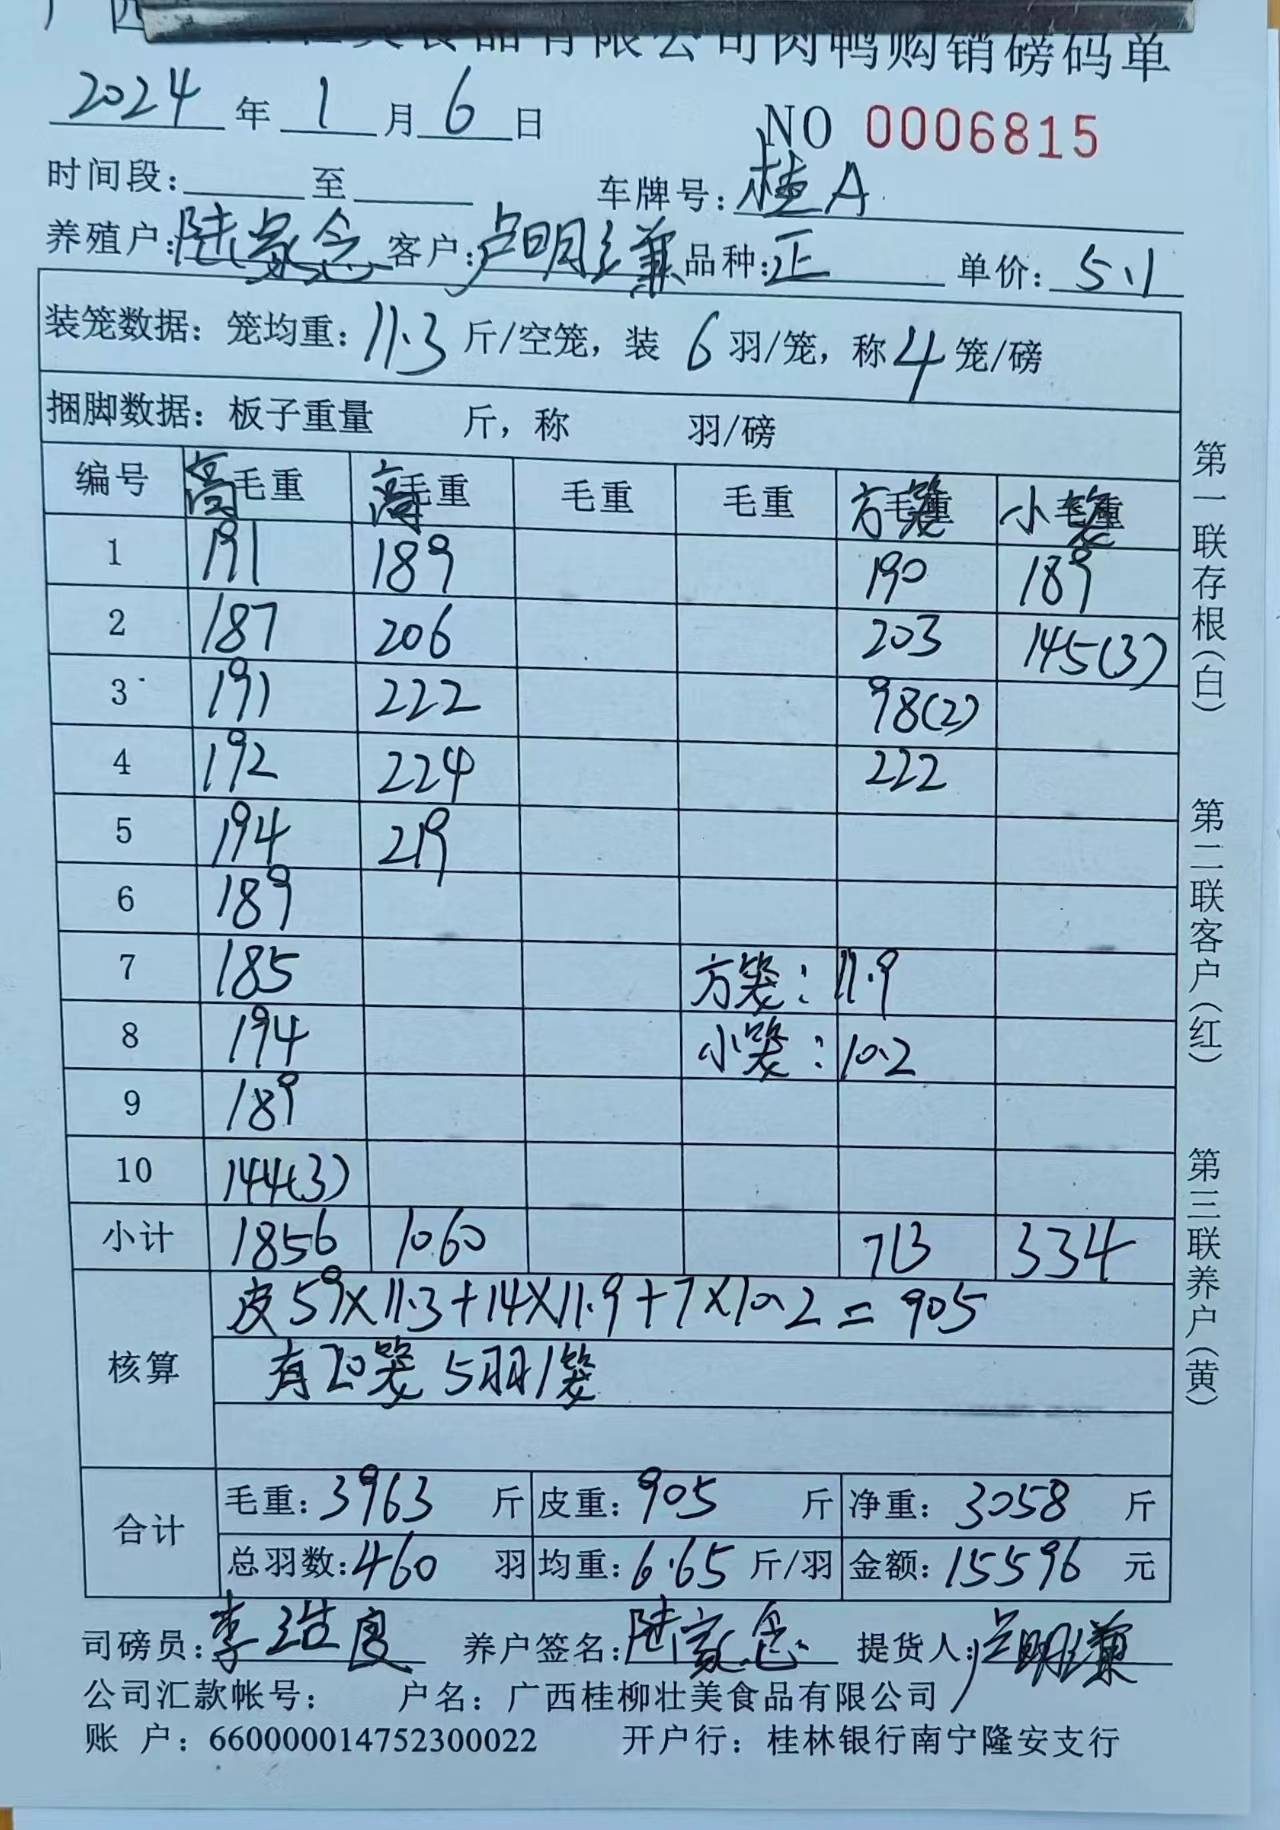 食品有限公司肉鸭购销磅码单
2024年1月6日 NO 0006815
时间段: 至 车牌号: 桂A
养殖户: 陆家念 客户: 卢明兼 品种: 正 单价: 5.1
装笼数据: 笼均重: 11.3 斤/空笼, 装 6 羽/笼, 称 4 笼/磅
捆脚数据: 板子重量 斤, 称 羽/磅
编号 高毛重 高毛重 毛重 毛重 方笼毛重 小笼毛重
1 191 189 190 189
2 187 206 203 145(3)
3 191 222 98(2)
4 192 224 222
5 194 219
6 189
7 185 方笼: 11.9
8 194 小笼: 10.2
9 189
10 144(3)
小计 1856 1060 713 334
核算 皮59×11.3+14×11.9+7×10.2=905
有20笼 5羽1笼
合计 毛重: 3963 斤 皮重: 905 斤 净重: 3058 斤
总羽数: 460 羽 均重: 6.65 斤/羽 金额: 15596 元
司磅员: 李 良 养户签名: 陆家念 提货人: 卢明兼
公司汇款帐号: 户名: 广西桂柳壮美食品有限公司
账 户: 660000014752300022 开户行: 桂林银行南宁隆安支行
第一联存根(白) 第二联客户(红) 第三联养户(黄)